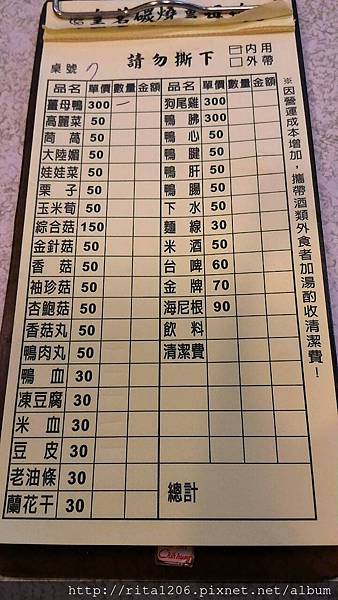 請勿撕下
內用
外帶
桌號 7
品名 單價 數量 金額 品名 單價 數量 金額
薑母鴨 300 一 狗尾雞 300
高麗菜 50 鴨胇 300
茼萵 50 鴨心 50
大陸媚 50 鴨腱 50
娃娃菜 50 鴨肝 50
栗子 50 鴨腸 50
玉米荀 50 下水 50
綜合菇 150 麵線 30
金針菇 50 米酒 50
香菇 50 台啤 60
袖珍菇 50 金牌 70
杏鮑菇 50 海尼根 90
香菇丸 50 飲料
鴨肉丸 50 清潔費
鴨血 30
凍豆腐 30
米血 30
豆皮 30
老油條 30 總計
蘭花干 30
※因營運成本增加，攜帶酒類外食者加湯酌收清潔費！
http://rita1206.pixnet.net/album